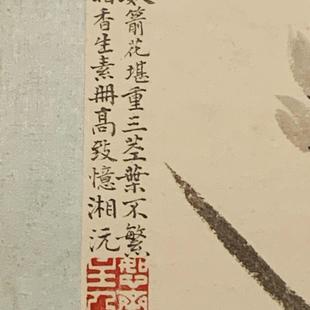 箭花堪重三莖葉不繁
香生素册高致憶湘沅